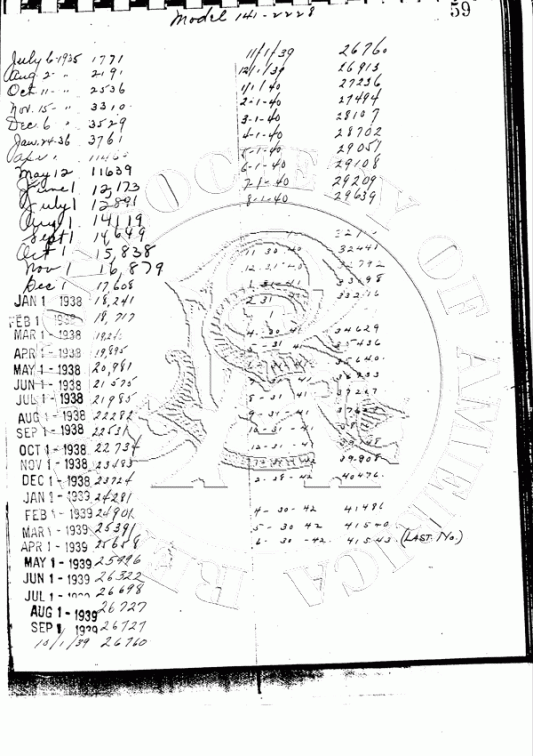 59
Model 141-2228
July 6-1935 1771
Aug 2- " 2191
Oct 11- " 2536
Nov. 15- " 3310
Dec. 6 " 3529
Jan. 24-36 3761
May 12 11639
June 1 12,173
July 1 12891
Aug 1 14119
Sept 1 14,649
Oct 1 15,838
Nov 1 16,879
Dec 1 17,608
JAN 1 1938 18,241
FEB 1 1938 18,717
MAR 1 - 1938
APR 1 - 1938 19,895
MAY 1 - 1938 20,981
JUN 1 - 1938 21575
JUL 1 - 1938 21985
AUG 1 - 1938 22282
SEP 1 - 1938 22531
OCT 1 - 1938 22734
NOV 1 - 1938 23183
DEC 1 - 1938 23724
JAN 1 - 1939 24281
FEB 1 - 1939 24901
MAR 1 - 1939 25391
APR 1 - 1939 25658
MAY 1 - 1939 25996
JUN 1 - 1939 26322
JUL 1 - 26698
AUG 1 - 1939 26727
SEP 1 1939 26727
10/1/39 26760
11/1/39 26760
12/1/39 26913
1/1/40 27236
2-1-40 27494
3-1-40 28107
4-1-40 28702
5-1-40 29051
6-1-40 29108
7-1-40 29209
8-1-40 29639
11-30-40 32441
12-31-40 32792
33098
4-30-41 34629
35436
8-31-41
9-31-41
10-31-41
12-31-41
39808
2-28-42 40476
4-30-42 41486
5-30 42 41540
6-30-42 41543 (LAST NO.)
SOCIETY OF AMERICA